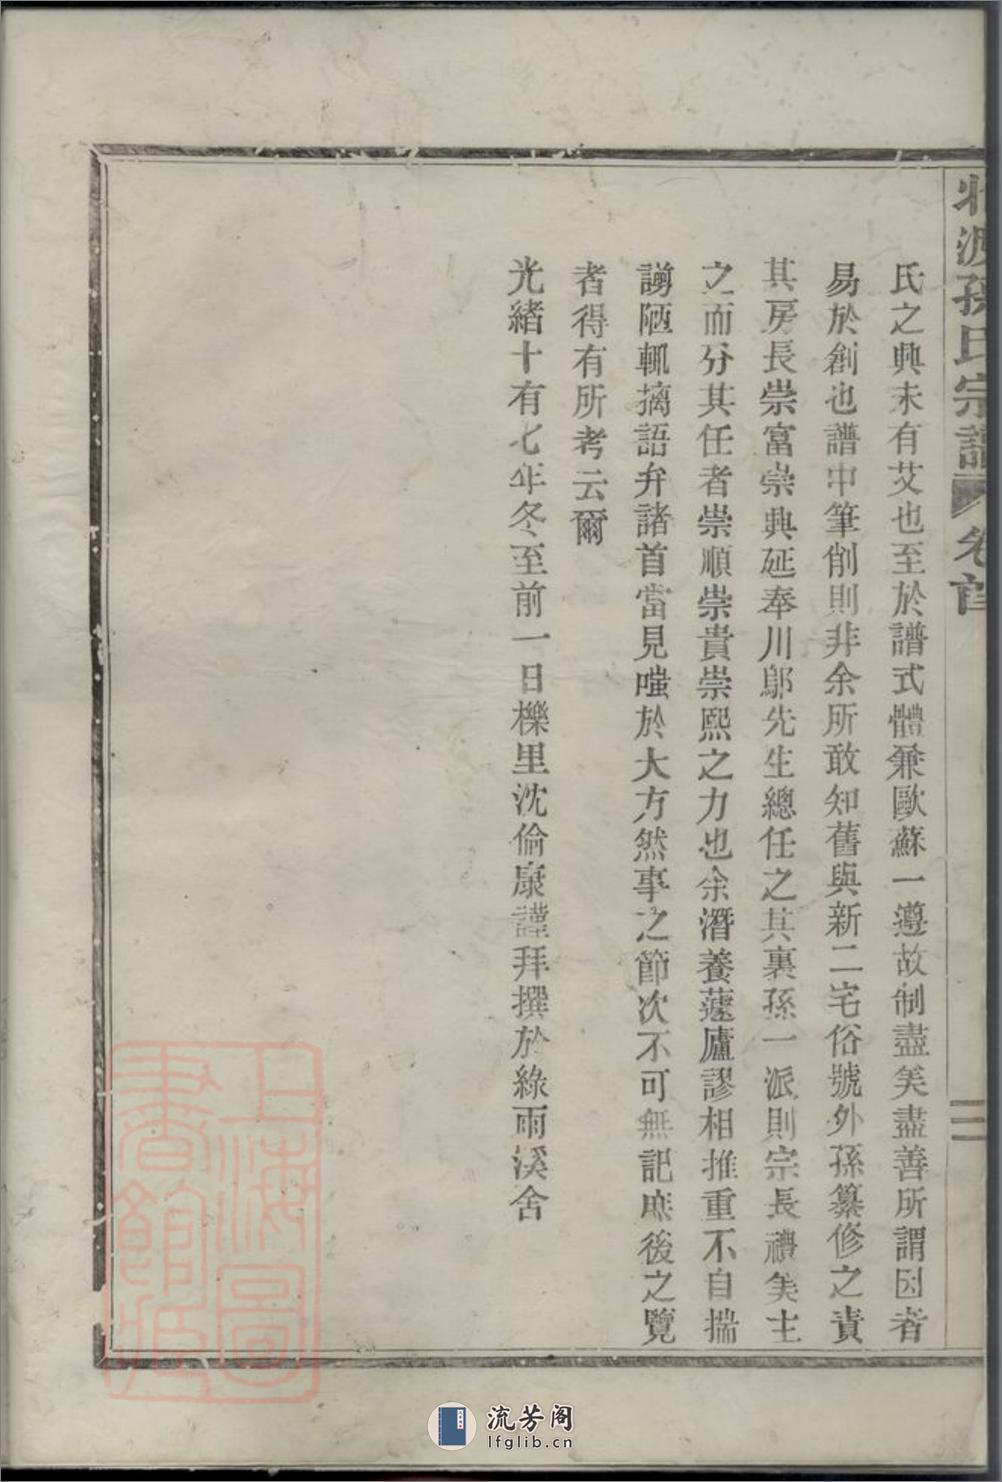 孫氏宗譜 卷首
二
氏之興未有艾也至於譜式體兼歐蘇一遵故制盡美盡善所謂因者
易於創也譜中筆削則非余所敢知舊與新二宅俗號外孫纂修之責
其房長崇富崇典延奉川鄔先生總任之其裏孫一派則宗長禮美主
之而分其任者崇順崇貴崇熙之力也余潛養蘧廬謬相推重不自揣
譾陋輒摛語弁諸首當見嗤於大方然事之節次不可無記庶後之覽
者得有所考云爾
光緒十有七年冬至前一日櫟里沈倫康謹拜撰於綠雨溪舍
上海圖
書館藏
流芳阁
lfglib.cn